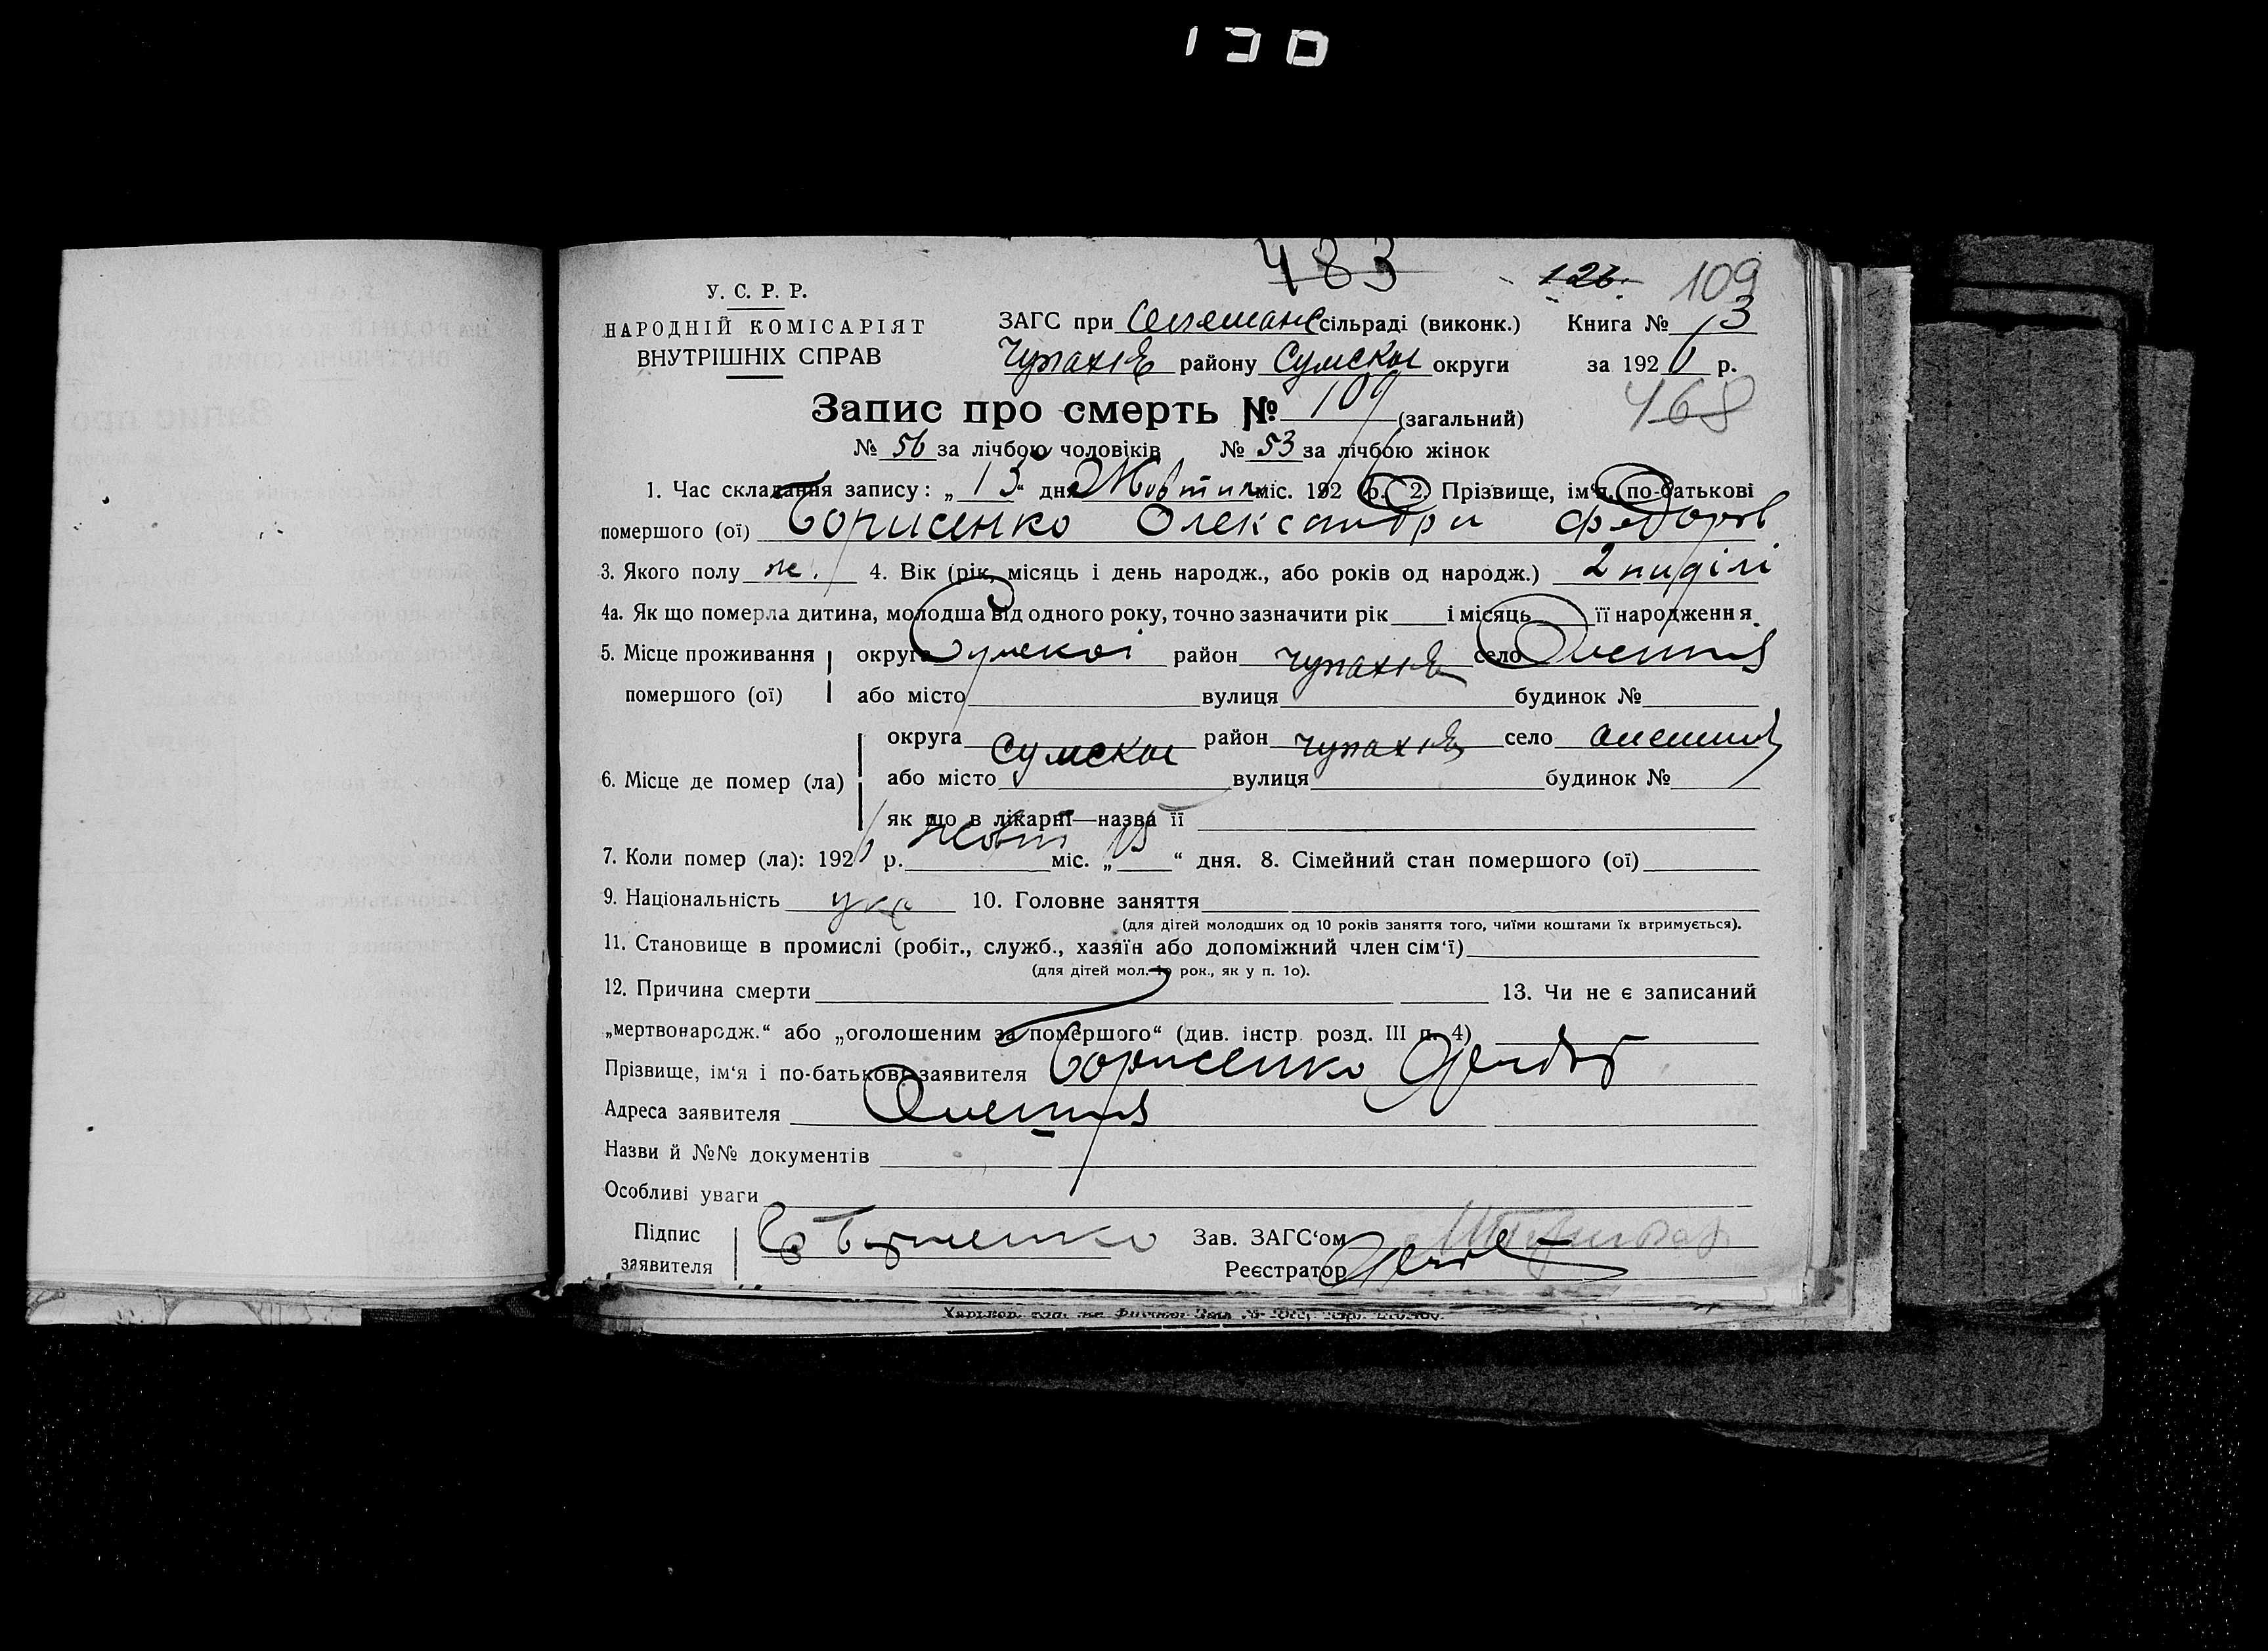 130
483
126. 109
У. С. Р. Р.
НАРОДНІЙ КОМІСАРІЯТ
ВНУТРІШНІХ СПРАВ
ЗАГС при сільраді (виконк.) Книга № 3
Чупахів району Сумскої округи за 1926 р.
468
Запис про смерть № 109 (загальний)
№ 56 за лічбою чоловіків № 53 за лічбою жінок
1. Час складання запису: „ 15 “ дня Жовтня міс. 1926 р. 2. Прізвище, ім‘я, по-батькові
помершого (ої) Борисенко Олександра Федоров
3. Якого полу ж. 4. Вік (рік, місяць і день народж., або років од народж.) 2 ниділі
4а. Як що померла дитина, молодша від одного року, точно зазначити рік і місяць її народження.
5. Місце проживання округа Сумскої район Чупахів село
помершого (ої) або місто вулиця будинок №
округа Сумскої район Чупахів село
6. Місце де помер (ла) або місто вулиця будинок №
як що в лікарні—назва її
7. Коли помер (ла): 1926 р. Жовт міс. „ 15 “ дня. 8. Сімейний стан помершого (ої)
9. Національність укр 10. Головне заняття
(для дітей молодших од 10 років заняття того, чиїми коштами їх втримується).
11. Становище в промислі (робіт., служб., хазяїн або допоміжний член сім‘ї)
(для дітей мол. 10 рок., як у п. 10).
12. Причина смерти 13. Чи не є записаний
„мертвонародж.“ або „оголошеним за помершого“ (див. інстр. розд. III п. 4)
Прізвище, ім‘я і по-батькові заявителя Борисенко
Адреса заявителя
Назви й №№ документів
Особливі уваги
Підпис Борисенко Зав. ЗАГС‘ом
заявителя Реєстратор